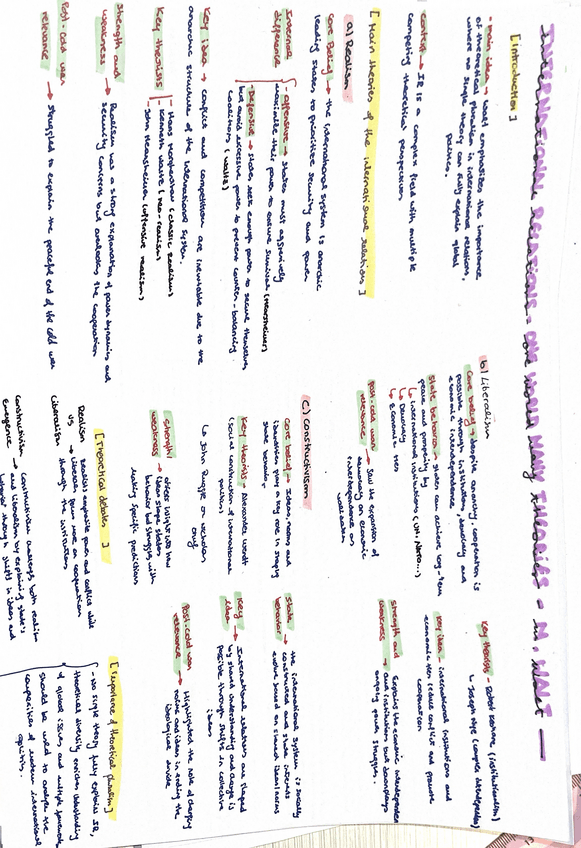 INTERNATIONAL RELATIONS : ONE WORLD MANY THEORIES - M. WALT
[introduction]
- main idea → walt emphasizes the importance
of theoretical pluralism in international relations,
where no single theory can fully explain global
politics.
context → IR is a complex field with multiple
competing theoretical perspectives
[Main theories of the international relations]
a) Realism:
Core Belief → the international system is anarchic
leading states to prioritize security and power
Internal difference
- offensive → states must aggressively
maximize their power to ensure survival (mearsheimer)
Defensive → states seek enough power to secure themselves
but avoid excessive power to prevent counter-balancing
coalitions (waltz)
Key idea → conflict and competition are inevitable due to the
anarchic structure of the international system.
Key theorists
- Hans morgenthau (classic realism)
- Kenneth waltz (neo-realism)
- John mearsheimer (offensive realism)
strength and weakness → Realism has a strong explanation of power dynamics and
security concerns but overlooks the cooperation
Post cold war relevance → struggled to explain the peaceful end of the cold war
b) Liberalism
Core belief → despite anarchy, cooperation is
possible through institutions, democracy and
economic interdependence
state behavior → states can achieve long-term
peace and prosperity by
↳ international institutions (UN, NATO...)
↳ Democracy
↳ Economic ties
post-cold war relevance → saw the expansion of
democracy and economic
interdependence as
validation
Key theorists - Robert Keohane (institutionalism)
↳ Joseph Nye (complex interdependency)
Key idea - international institutions and
economic ties reduce conflict and promote
cooperation
strength and weakness → Explains the economic interdependence
and institutions but downplays
ongoing power struggles.
c) constructivism
core belief → Ideas, norms and
identities play a key role in shaping
state behavior,
Key theorists → Alexander wendt
(social construction of international
politics)
↳ John Ruggie
strength/ weakness → offers insight into how
ideas shape states
behavior but struggles with
making specific predictions
state behavior → the international system is socially
constructed and state interests
evolve based on shared ideas/norms
Key idea → International relations are shaped
by shared understanding and change is
possible through shifts in collective
ideas
Post-cold war relevance → Highlighted the role of changing
norms and ideas in ending the
ideological divide
[theoretical debates]
Realism vs Liberalism → realists emphasize power and conflict while
liberals focus more on cooperation
through the institutions
constructivism emergence → constructivism challenges both realism
and liberalism by explaining state's
behavior through shifts in ideas and
[Importance of theoretical pluralism]
- No single theory fully explains IR,
theoretical diversity enriches understanding
of global issues and multiple frameworks
should be used to analyze the
complexities of modern international
politics.